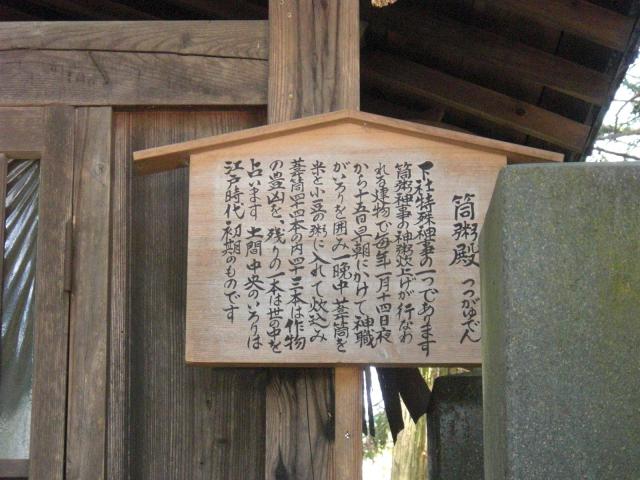 筒粥殿 つつがゆでん
下社特殊神事の一つであります
筒粥神事の神粥炊上げが行なわ
れる建物で毎年一月十四日夜
から十五日早朝にかけて神職
がいろりを囲み一晩中葦筒を
米と小豆の粥に入れて炊込み
葦筒四十四本の内四十三本は作物
の豊凶を、残りの一本は世の中を
占います 土間中央のいろりは
江戸時代初期のものです